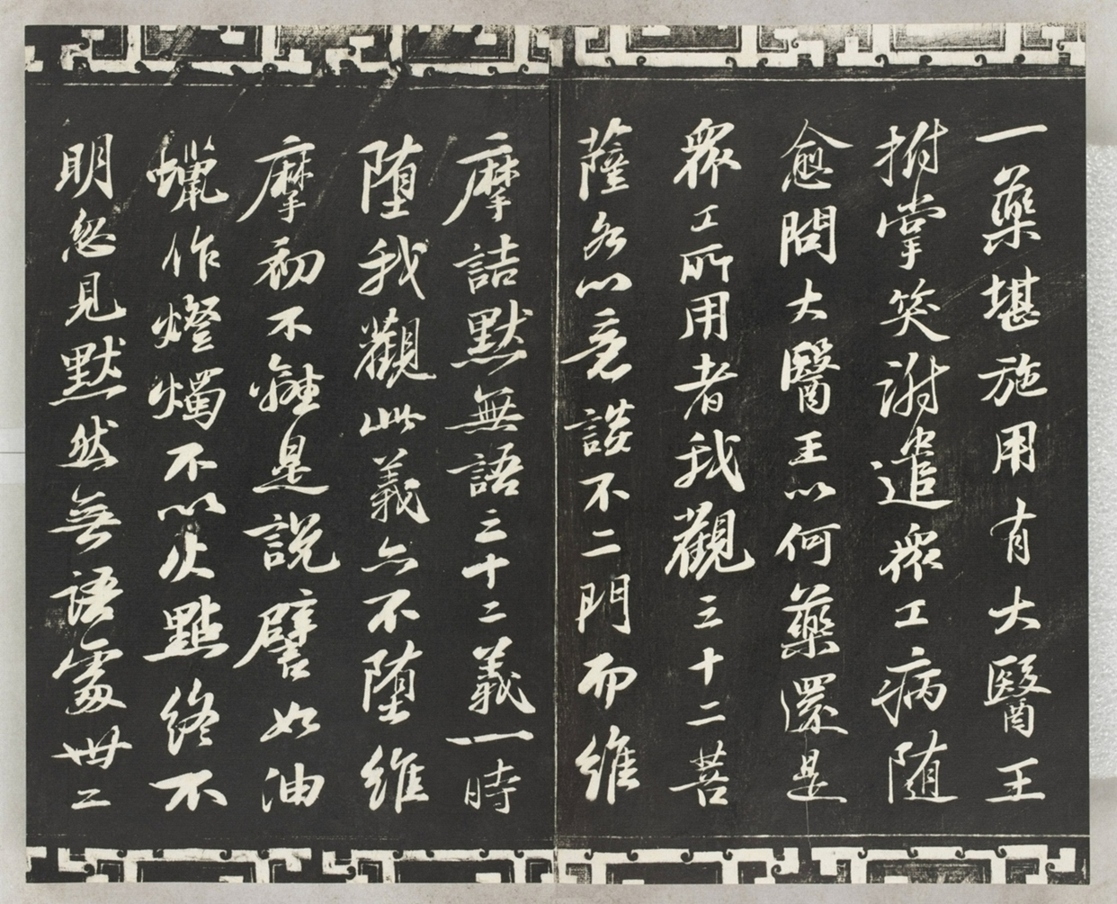 一藥堪施用有大醫王
拊掌笑謝遣衆工病随
愈問大醫王以何藥還是
衆工所用者我觀三十二菩
薩各以意談不二門而維
摩詰默無語三十二義一時
堕我觀此義亦不堕維
摩初不離是説譬如油
蠟作燈燭不以火點終不
明忽見默然無語處卅二